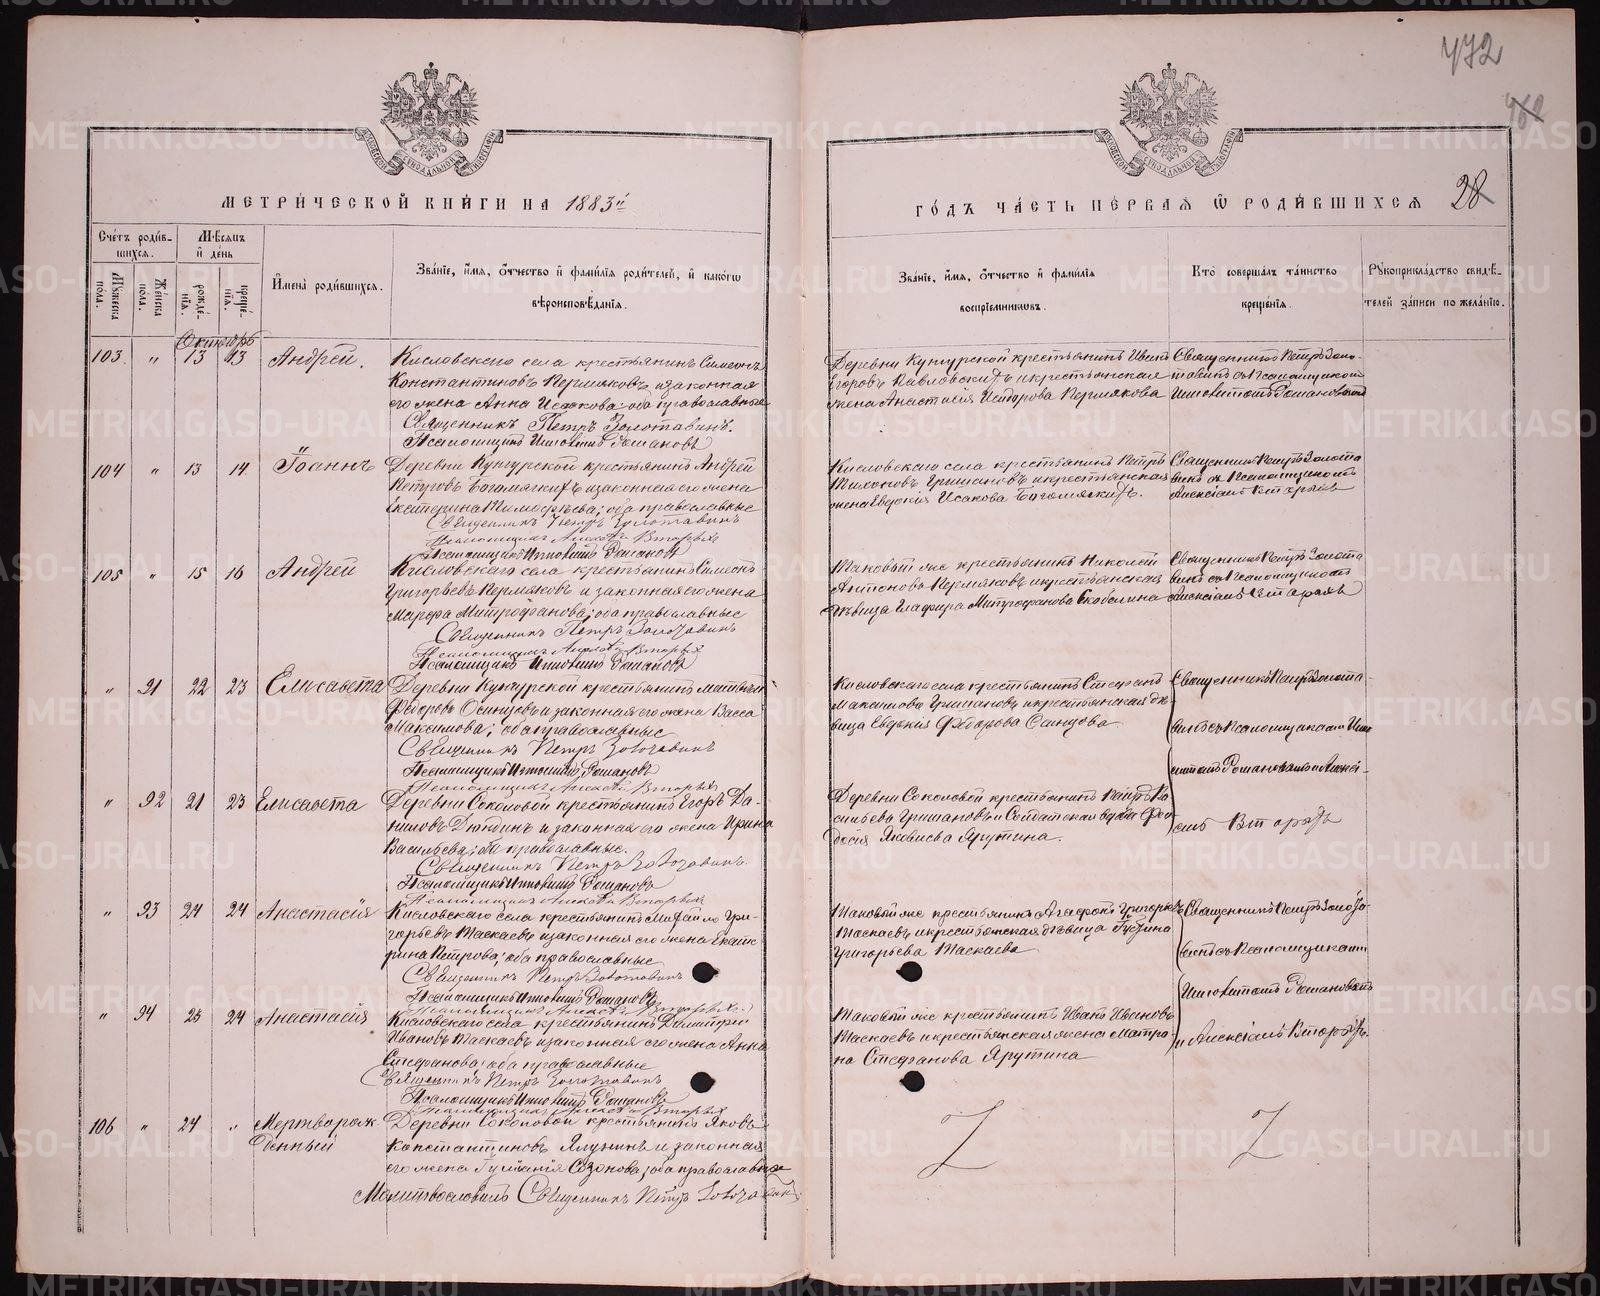 472
462
МЕТРИ́ЧЕСКОЙ КНИ́ГИ НА 1883й
ГО́ДЪ ЧА́СТЬ ПЕ́РВАЯ Ѿ РОДИ́ВШИХСЯ
28
Сче́тъ роди́в-
шихся.
Мѣсяцъ
и҆ де́нь
Му́жеска по́ла.
Же́нска по́ла.
рожде́-
нїѧ.
креще́-
нїѧ.
И҆мена̀ роди́вшихся.
Зва́нїе, и҆́мя, ѻ҆́тчество и҆ фами́лїя роди́телей, и҆ како́гѡ
вѣроисповѣ́данїя.
Зва́нїе, и҆́мя, ѻ҆́тчество и҆ фами́лїя
воспрїе́мниковъ.
Кто̀ соверша́лъ та́инство
креще́нїя.
Рꙋкоприкла́дство свидѣ́-
телей за́писи по жела́нїю.
Октябрь
103. " 13 13 Андрей.
Кисловскаго села крестьянинъ Симеонъ
Константиновъ Пермяковъ и законная
его жена Анна Исакова; оба православные
Священникъ Петръ Золотавинъ.
Псаломщикъ Ипполитъ Романовъ
Деревни Кунгурской крестьянинъ Иванъ
Егоровъ Павловскихъ и крестьянская
жена Анастасія Исидорова Пермякова
Священникъ Петръ Золо-
тавинъ съ Псаломщикомъ
Ипполитомъ Романовымъ
104 " 13 14. Іоаннъ
Деревни Кунгурской крестьянинъ Андрей
Петровъ Богомягкихъ и законная его жена
Екатерина Тимофѣева; оба православные
Священникъ Петръ Золотавинъ
Псаломщикъ Алексѣй Вторыхъ
Псаломщикъ Ипполитъ Романовъ
Кисловскаго села крестьянинъ Петръ
Тихоновъ Гришановъ и крестьянская
жена Евдокія Исакова Богомягкихъ.
Священникъ Петръ Золота
винъ съ Псаломщикомъ
Алексіемъ Вторыхъ
105 " 15 16 Андрей
Кисловскаго села крестьянинъ Симеонъ
Григорьевъ Пермяковъ и законная его жена
Марфа Митрофанова; оба православные
Священникъ Петръ Золотавинъ
Псаломщикъ Алексѣй Вторыхъ
Псаломщикъ Ипполитъ Романовъ
Таковый же крестьянинъ Николай
Антоновъ Пермяковъ и крестьянская
дѣвица Глафира Митрофанова Скобелина
Священникъ Петръ Золота
винъ съ Псаломщикомъ
Алексіемъ Вторыхъ
" 91 22 23 Елисавета
Деревни Кунгурской крестьянинъ Матвѣй
Ѳедоровъ Осинцовъ и законная его жена Васса
Максимова; оба православные
Священникъ Петръ Золотавинъ
Псаломщикъ Ипполитъ Романовъ
Псаломщикъ Алексѣй Вторыхъ
Кисловскаго села крестьянинъ Стефанъ
Максимовъ Гришановъ и крестьянская дѣ-
вица Евдокія Ѳедорова
Священникъ Петръ Золота-
винъ съ Псаломщиками Иппо
литомъ Романовымъ и Алексі-
емъ Вторыхъ
" 92 21 23 Елисавета
Деревни Соколовой крестьянинъ Егоръ Да-
ниловъ Дюндинъ и законная его жена Ирина
Васильева; оба православные.
Священникъ Петръ Золотавинъ.
Псаломщикъ Ипполитъ Романовъ
Псаломщикъ Алексѣй Вторыхъ
Деревни Соколовой крестьянинъ Петръ Ва-
сильевъ Гришановъ и Солдатская вдова Ѳео-
досія Яковлева Ярутина.
" 93 24 24 Анастасія
Кисловскаго села крестьянинъ Михайло Гри-
горьевъ Таскаевъ и законная его жена Екате-
рина Петрова; оба православные
Священникъ Петръ Золотавинъ
Псаломщикъ Ипполитъ Романовъ
Псаломщикъ Алексѣй Вторыхъ
Таковый же крестьянинъ Агафонъ Григорьевъ
Таскаевъ и крестьянская дѣвица
Григорьева Таскаева
Священникъ Петръ Золота-
винъ съ Псаломщиками
Ипполитомъ Романовымъ
и Алексіемъ Вторыхъ.
" 94 23 24 Анастасія
Кисловскаго села крестьянинъ Димитрій
Ивановъ Таскаевъ и законная его жена Анна
Стефанова; оба православные
Священникъ Петръ Золотавинъ
Псаломщикъ Ипполитъ Романовъ
Псаломщикъ Алексѣй Вторыхъ
Таковый же крестьянинъ Иванъ Ивановъ
Таскаевъ и крестьянская жена Матро-
на Стефанова Ярутина
106 " 24 " Мертворож
денный
Деревни Соколовой крестьянинъ Яковъ
Константиновъ Ялунинъ и законная
его жена Сазонова; оба православные
Молитвословилъ Священникъ Петръ Золотавинъ
METRIKI.GASO-URAL.RU